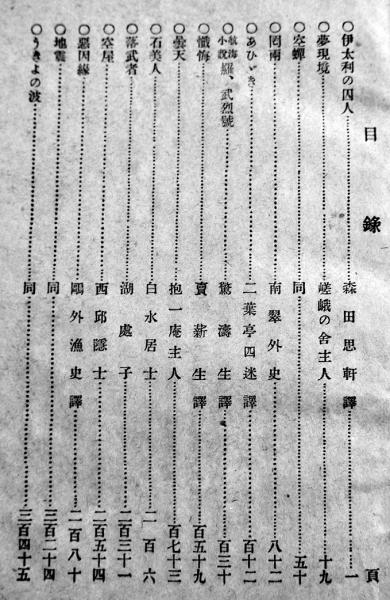 目錄
頁
○伊太利の囚人 森田思軒譯 一
○夢現境 嵯峨の舍主人 十九
○空蟬 同 五十
○罔兩 南翠外史 八十二
○あひゞき 二葉亭四迷譯 百十二
○航海小說羅、武烈號 驚濤生譯 百三十
○懺悔 賣薪生譯 百五十九
○曇天 抱一庵主人 百七十三
○石美人 白水居士 二百六
○落武者 湖處子 二百三十一
○空屋 西邱隱士 二百五十四
○惡因緣 鷗外漁史譯 二百八十
○地震 同 三百二十四
○うきよの波 同 三百四十五